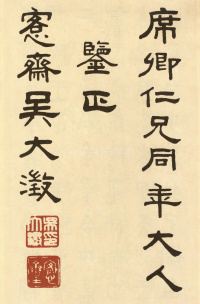 席卿仁兄同年大人
鑒正
愙齋吳大澂